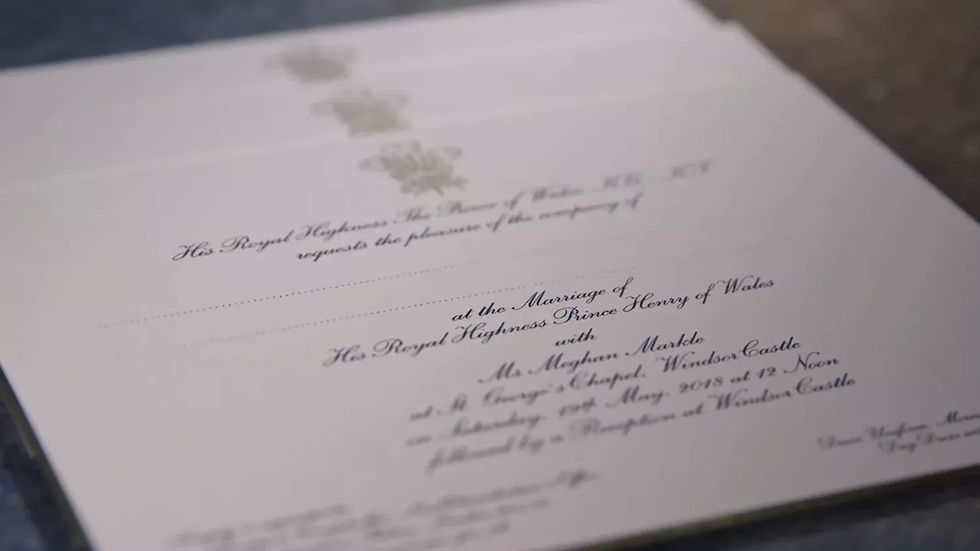 His Royal Highness The Prince of Wales, K.G., K.T.
requests the pleasure of the company of
at the Marriage of
His Royal Highness Prince Henry of Wales
with
Ms Meghan Markle
at St. George's Chapel, Windsor Castle
on Saturday, 19th May, 2018 at 12 Noon
followed by a Reception at Windsor Castle
Dress: Uniform,
Day Dress